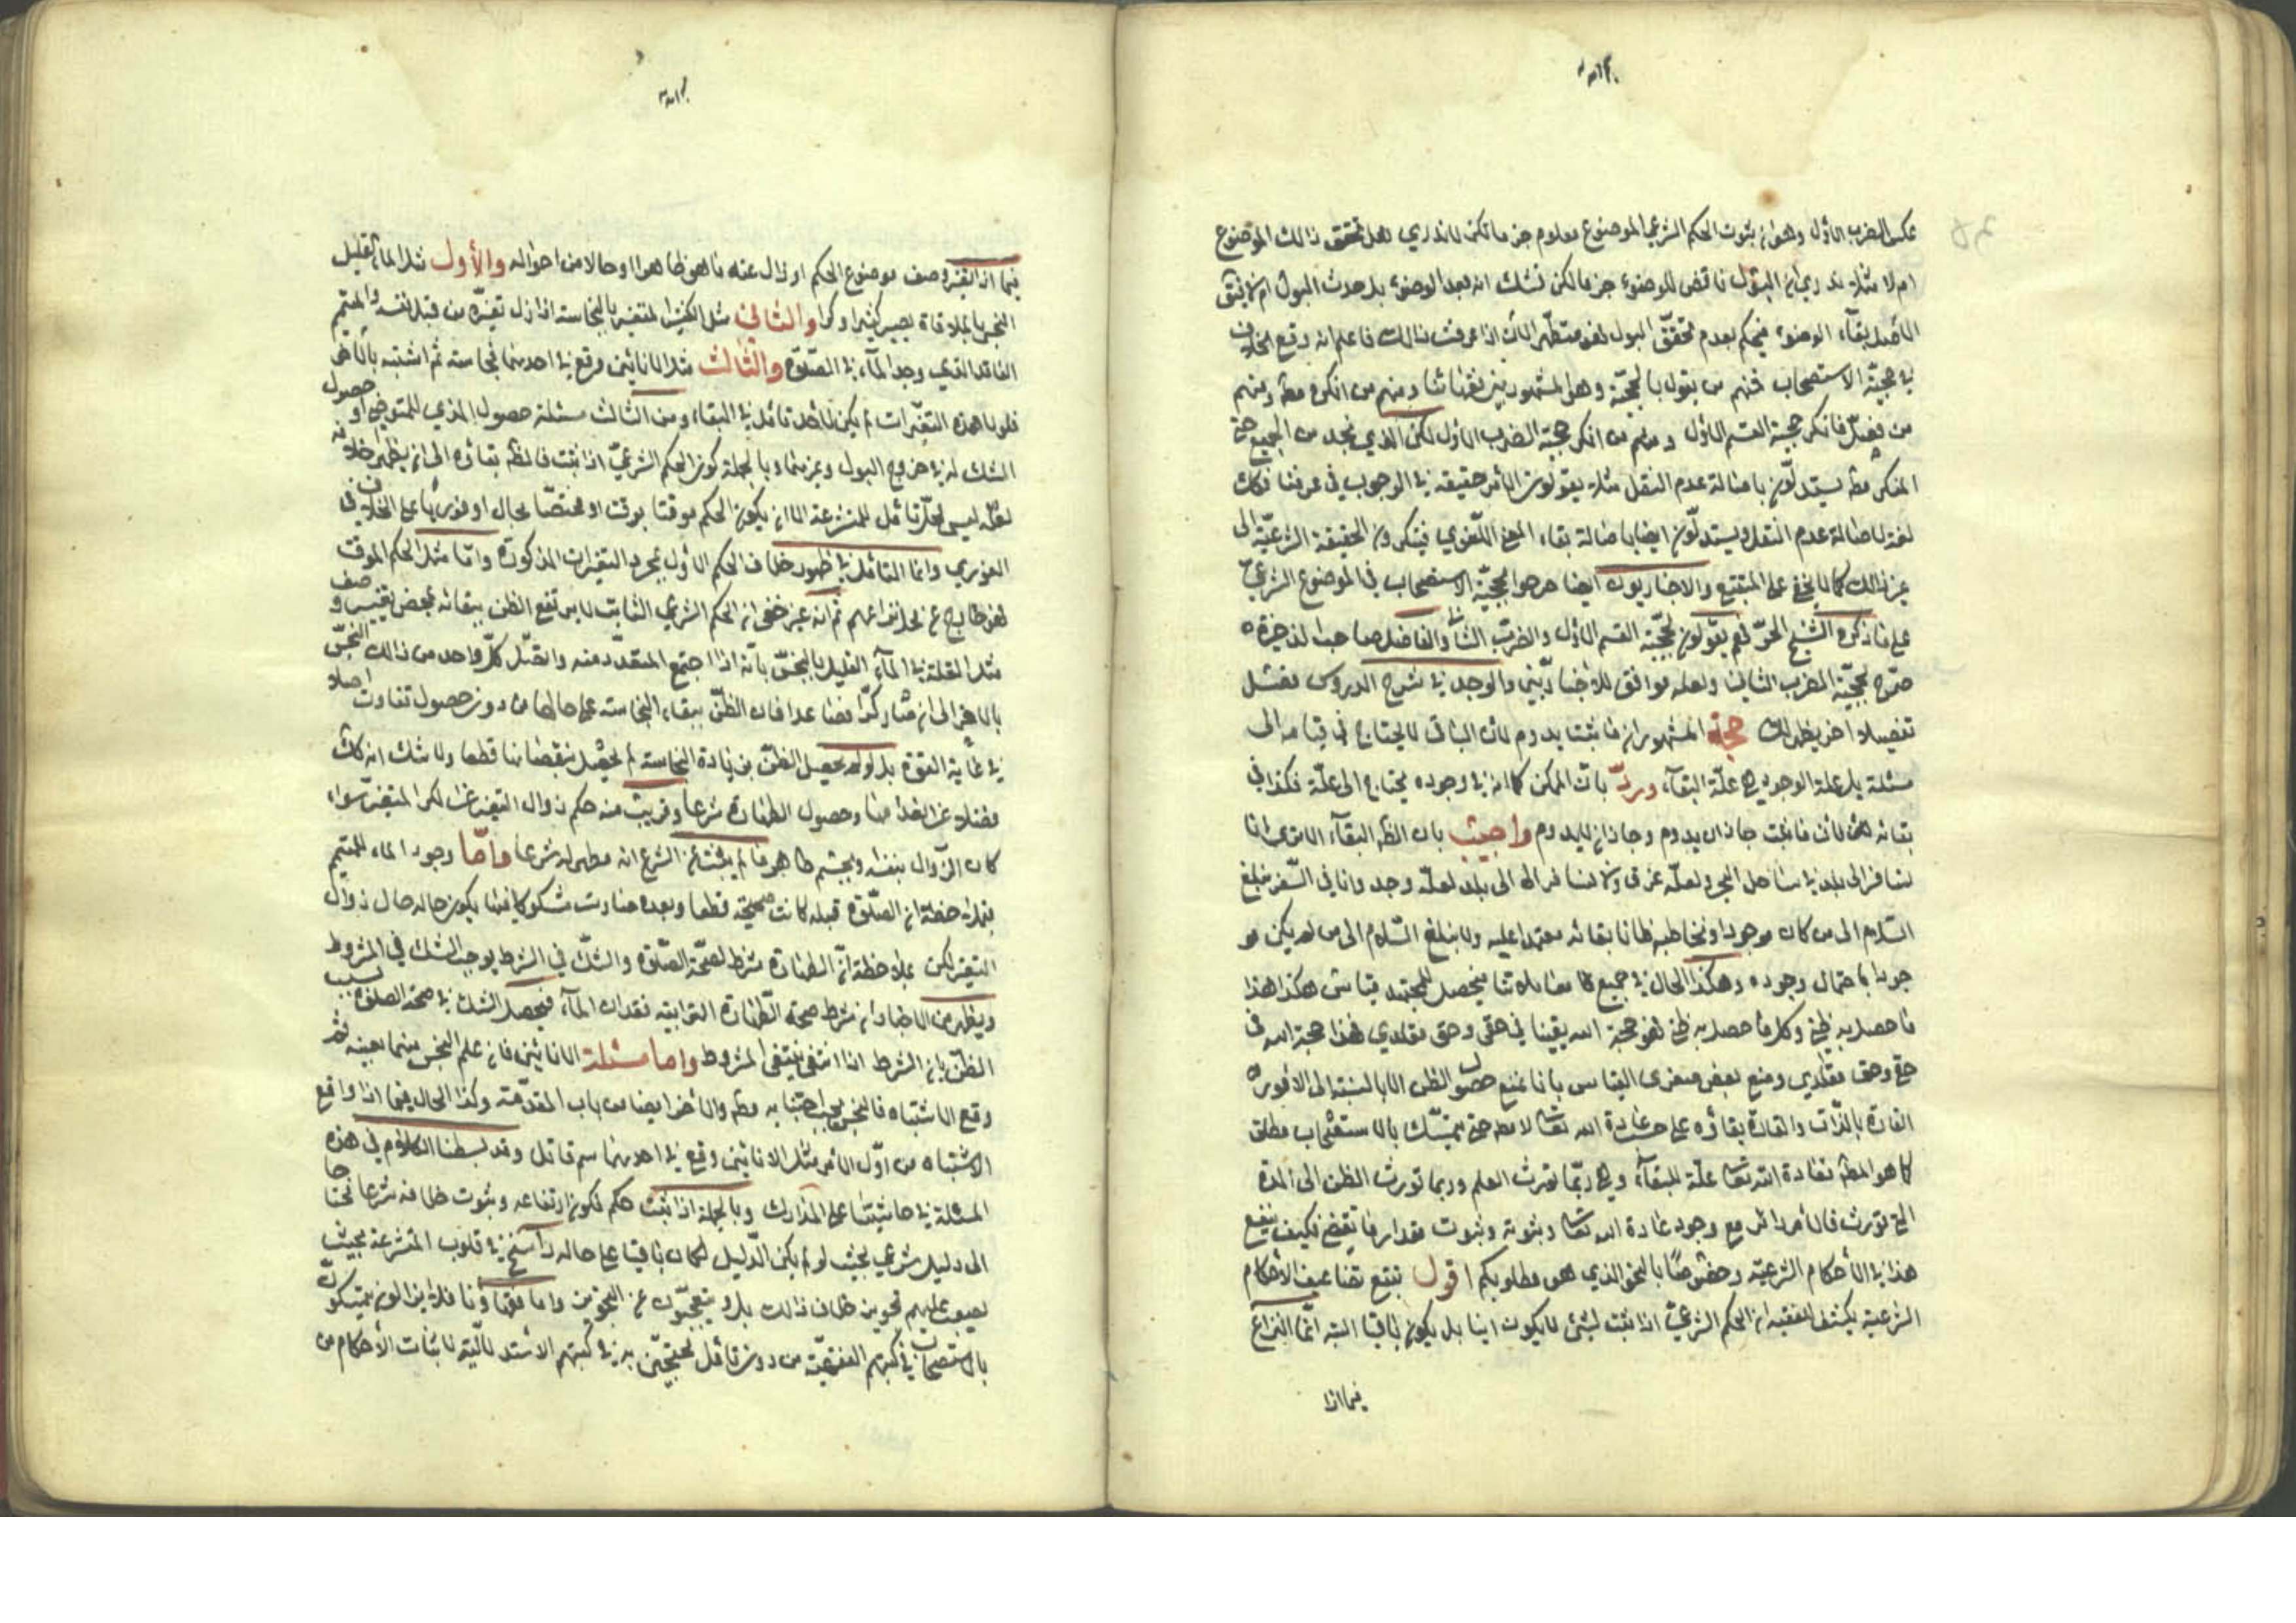 عكس الضرب الأول وهو ان ثبوت الحكم الشرعي للموضوع معلوم جزما لكن لا ندري هل تحقق ذالك الموضوع
ام لا مثلا ندري ان البول ناقض للوضوء جزما لكن نشك انه بعد الوضوء بل حدث البول ام لا فنقول
الأصل بقاء الوضوء فيحكم بعدم تحقق البول فهو متطهر الآن اذا عرفت ذالك فاعلم انه وقع الخلاف
في حجية الاستصحاب فمنهم من يقول بالحجية وهو المشهور بين فقهائنا ومنهم من انكره مطه ومنهم
من فصل فانكر حجية القسم الأول ومنهم من انكر حجية الضرب الأول لكن الذي نجد من الجميع حتى
المنكر مطه يستدلون باصالة عدم النقل مثلا يقولون الأمر حقيقة في الوجوب في عرفنا فكك
لغة لاصالة عدم النقل ويستدلون ايضا باصالة بقاء المعنى اللغوي فينكرون الحقيقة الشرعية الى
غير ذالك كما لا يخفى على المتتبع والاخباريون ايضا صرحوا بحجية الاستصحاب في الموضوع الشرعي
على ما ذكره الشيخ الحر فهم يقولون بحجية القسم الأول والضرب الثاني والفاضل صاحب الذخيرة
صرح بحجية الضرب الثاني ولعله موافق للأخباريين والوجد في شرح الدروس مفصل
تفصيلا اخر يظهر لك حجة المشهور ان ما ثبت يدوم لأن الباقي لا يحتاج في بقائه الى
مسئلة بل علة الوجود هي علة البقاء ورد بان الممكن كما انه في وجوده يحتاج الى علة فكذا في
بقائه لأن ما ثبت جاز ان يدوم وجاز ان لا يدوم واجيب بان الظه البقاء الا ترى انا
نسافر الى بلد في ساحل البحر لعله غرق ولا نسافر الى بلد لعله وجد وانا في السفر نبلغ
السلام الى من كان موجودا ونخاطبه ظانا بقائه معتمدا عليه ولا نبلغ السلام الى من لم يكن مو
جودا باحتمال وجوده وهكذا الحال في جميع معاملاتنا فيحصل للمجتهد قياس هكذا هذا
ما حصل به ظني وكل ما حصل به ظني فهو حجة الله يقينا في حقي وحق مقلدي فهذا حجة الله في
حقي وحق مقلدي ومنع بعض صغرى القياس بانا نمنع حصول الظن الا بالنسبة الى الأمور
القارة بالذات والقارة بقاؤه على حسب عادة الله تعا لا مطه حتى يتمسك بالاستصحاب مطلقا
كما هو المطه فعادة الله تعا علة للبقاء وهي ربما تورث العلم وربما تورث الظن الى المدة
التي تورث فالأمر دائر مع وجود عادة الله تعا وثبوته وثبوت مقدار ما تقتضي فكيف ينفع
هذا في الأحكام الشرعية وخصوصا بالنحو الذي هو مطلوبكم اقول تتبع تضاعيف الأحكام
الشرعية يكشف للفقيه ان الحكم الشرعي اذا ثبت لشئ لا يكون آنيا بل يكون باقيا البتة انما النزاع
فيما اذا
فيما اذا تغير وصف موضوع الحكم او زال عنه ما هو ظاهرا او حالا من احواله والأول مثل الماء القليل
النجس بالملاقاة يصير كثيرا وكرا والثاني مثل الكثير المتغير بالنجاسة اذا زال تغيره من قبل نفسه والمتيمم
الفاقد الذي وجد الماء في الصلوة والثالث مثل الانائين وقع في احدهما نجاسة ثم اشتبه بالأخر
فلولا هذه التغيرات لم يكن لأحد تأمل في البقاء ومن الثالث مسئلة حصول المذي للمتوضي او حصول
الشك له في خروج البول وغيرهما وبالجملة كون الحكم الشرعي اذا ثبت فالظه بقاؤه الى ان يظهر خلافه
لعله ليس محل تأمل للمتشرعة الا ان يكون الحكم موقتا بوقت او مختصا بحال او فوريا على الخلاف في
الفوري وانما التأمل في ظهور خلاف الحكم الأول بمجرد التغيرات المذكورة واما مثل الحكم الموقت
فهو خارج عن محل نزاعهم ثم انه غير خفي ان الحكم الشرعي الثابت لا يرتفع الظن ببقائه بمحض تغيير وصف
مثل القلة في الماء القليل النجس بأنه اذا اجتمع المتعدد منه واتصل كل واحد من ذالك النجس
بالأخر الى ان صار كرا فصاعدا فان الظن ببقاء النجاسة على حالها من دون حصول تفاوت اصلا
في غاية القوة بل لو لم يحصل الظن من زيادة النجاسة لم يحصل بنقصانها قطعا ولا شك انه كك
فضلا عن انعدامها وحصول الطهارة شرعا وقريب منه حكم زوال التغير عن الكر المتغير سواء
كان الزوال بنفسه وبجسم طاهر ما لم يثبت من الشرع انه مطهر له شرعا وأما وجود الماء للمتيمم
فبملاحظة ان الصلوة قبله كانت صحيحة قطعا وبعده صارت مشكوكا فيها يكون حاله حال زوال
التغير لكن بملاحظة ان الطهارة شرط لصحة الصلوة والشك في الشرط يوجب الشك في المشروط
ويظهر من الأخبار ان شرط صحة الطهارة الترابية فقدان الماء فيحصل الشك في صحة الصلوة بسبب
الظن بان الشرط اذا انتفى ينتفي المشروط واما مسئلة الانائين فان علم النجس منهما بعينه ثم
وقع الاشتباه فالنجس يجب اجتنابه مطه والأخر ايضا من باب المقدمة وكذا الحال فيما اذا واقع
الاشتباه من اول الأمر مثل الانائين وقع في احدهما سم قاتل وقد بسطنا الكلام في هذه
المسئلة في حاشيتنا على المدارك وبالجملة اذا ثبت حكم فكون ارتفاعه وثبوت خلافه شرعا محتاجا
الى دليل شرعي بحيث لو لم يكن الدليل لكان باقيا على حاله راسخ في قلوب المتشرعة بحيث
يصعب عليهم تجويز خلاف ذالك بل ويتعجبون عن المجوزين واما فقهاؤنا فلا يزالون يتمسكون
بالاستصحاب في كتبهم الفقهية من دون تأمل محتجين به في كتبهم الاستدلالية لاثبات الأحكام من